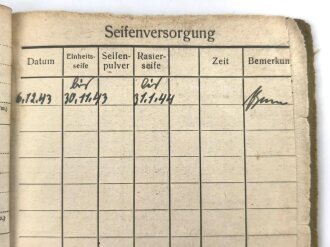 Seifenversorgung
Datum Einheits-seife Seifen-pulver Rasier-seife Zeit Bemerkun
bis bis
6.12.43 30.11.43 31.1.44